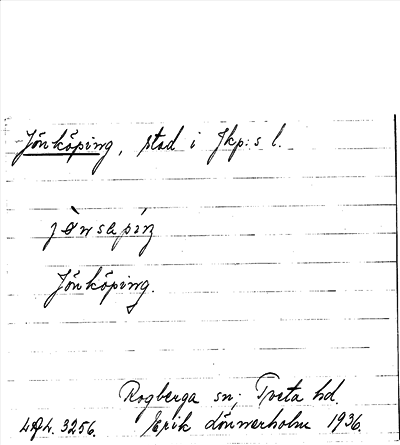 Jönköping, stad i Jkp:s l.
Jönköping.
Rogberga sn; Tveta hd.
3256. Erik Lönnerholm 1936.